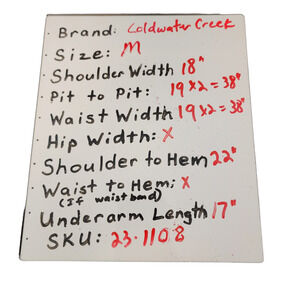 · Brand: Coldwater Creek
· Size: M
· Shoulder Width 18"
· Pit to Pit: 19 x 2 = 38"
· Waist Width 19 x 2 = 38"
· Hip Width: X
· Shoulder to Hem 22"
· Waist to Hem: X
(If waistband)
· Underarm Length 17"
· SKU: 23-1108